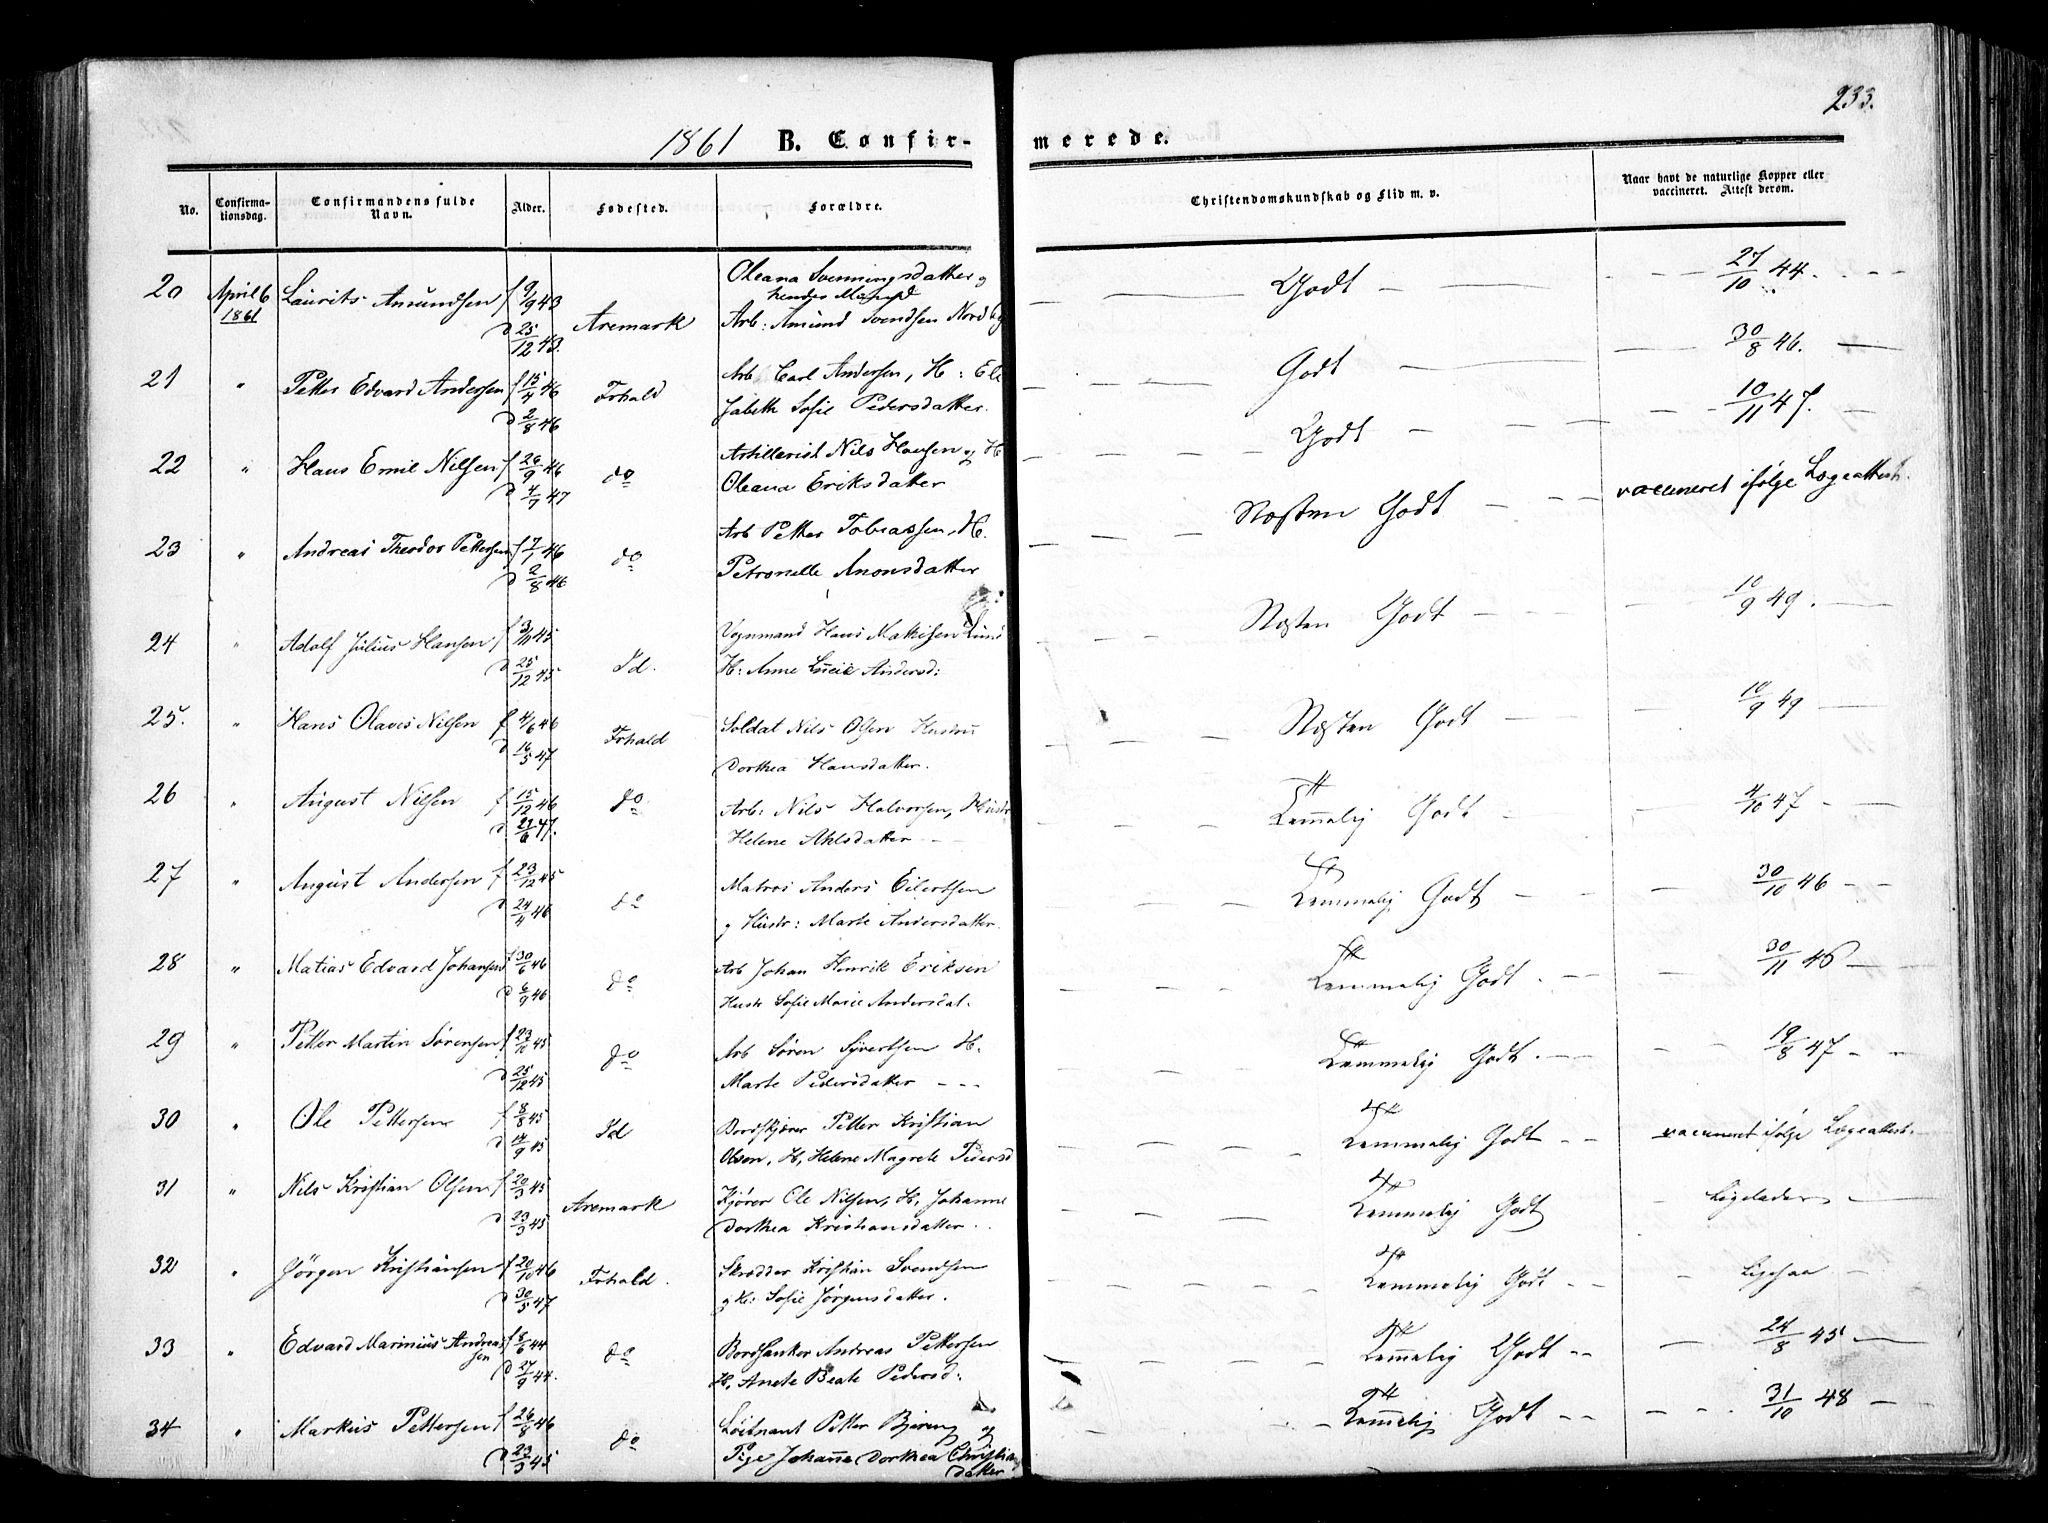 233.
1861 B. Confirmerede.
No. Confirmationsdag. Confirmandens fulde Navn. Alder. Fødested. Forældre. Christendomskundskab og Flid m. v. Naar havt de naturlige Kopper eller vaccineret. Attest derom.
20 April 6 1861 Laurits Amundsen f 9/9 43 Oleana Svenningsdatter og Godt 27/10 44.
hendes Mand
d 25/12 43. Aremark Arb: Amund Svendsen Nordby
21 " Petter Edvard Andersen f 15/4 46 Frhald Arb. Carl Andersen, H: Eli Godt 30/8 46.
d 2/8 46 sabeth Sofie Pedersdatter.
22 " Hans Emil Nilsen f 26/9 46 do Artillerist Nils Hansen og H Godt 10/11 47.
d 4/7 47 Oleana Eriksdatter
23 " Andreas Theodor Pettersen f 7/1 46 do Arb Petter Tobiassen, H. Næsten Godt vaccineret ifølge Lægeattest.
d 2/8 46 Petronelle Anonsdatter
24 " Adolf Julius Hansen f 3/11 45 Vognmand Hans Mathisen Lund Næsten Godt 10/9 49.
d 25/12 45 Id. H: Anne Lucie Andersd:
25. " Hans Olaves Nilsen f 4/6 46 Frhald Soldat Nils Olsen Hustru Næsten Godt 10/9 49
d 16/5 47 Dorthea Hansdatter.
26 " August Nilsen f 15/12 46 do Arb: Nils Halvorsen, Hustr Temmelig Godt 4/10 47
d 27/6 47. Helene Ahlsdatter
27 " August Andersen f 23/12 45 do Matros Anders Eilertsen Temmelig Godt 30/10 46
d 24/4 46 og Hustr: Marte Andersdatter.
28 " Matias Edvard Johansen f 30/6 46 do Arb Johan Henrik Eriksen Temmelig Godt. 30/11 46
d 6/9 46 Hustr Sofie Marie Andersdat.
29 " Petter Martin Sørensen f 23/10 45 do Arb Søren Syvertsen H. Temmelig Godt. 19/8 47
d 25/12 45 Marte Pedersdatter
30 " Ole Pettersen f 8/8 45 Id Bordskjærer Petter Kristian Temmelig Godt vaccineret ifølge Lægeattest.
d 14/9 45 Olsen, H, Helene Magrete Pedersd
31 " Nils Kristian Olsen f 20/3 45 Aremark Kjører Ole Nilsen, H, Johanne Temmelig Godt Ligeledes
d 23/3 45 Dorthea Kristiansdatter.
32 " Jörgen Kristiansen f 20/10 46 Frhald. Skrædder Kristian Svendsen Temmelig Godt Ligesaa
d 30/5 47 og H: Sofie Jørgensdatter.
33 " Edvard Marinius Andreassen f 8/6 44 do Bordsanker Andreas Pettersen Temmelig Godt 24/8 45
d 27/9 44. H, Anete Beate Pedersd:
34 " Markus Pettersen f 26/8 46 do Løitnant Petter Bjereng og Temmelig Godt 31/10 48
d 23/3 45 Pige Johanne Dorthea Christians
datter